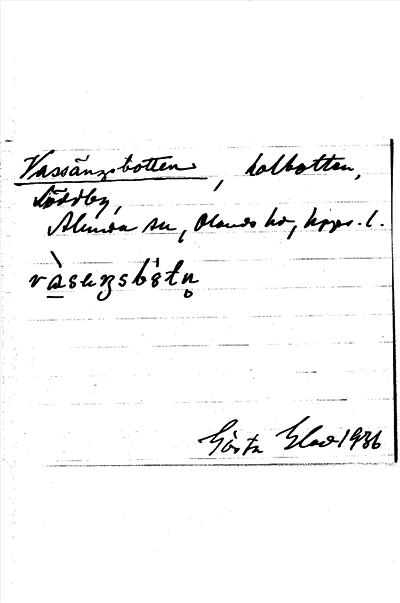 Vassängsbotten, kolbotten,
Söddby,
Alunda sn, Olands hd, Upps. l.
vàseŋsbȯtn̥
Gösta Elad 1936